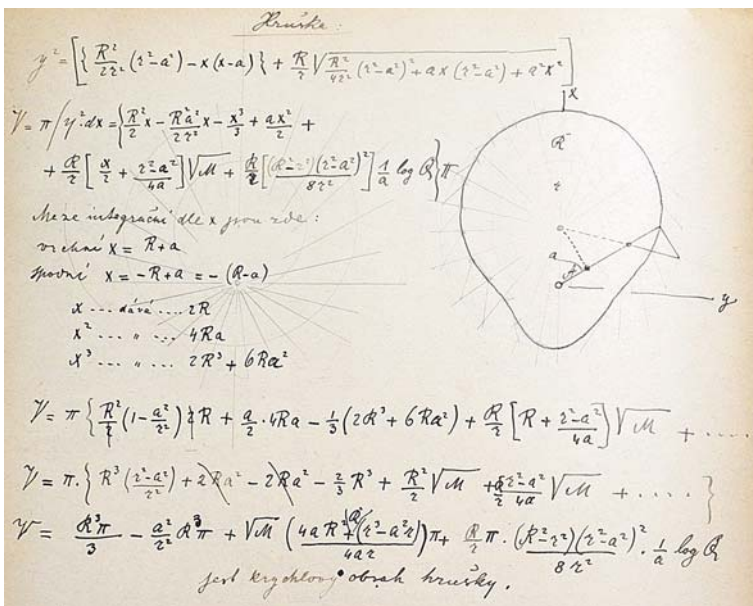 Hruška:
y² = [{ R²/2r² (r²-a²) - x(x-a) } + R/r √( R²/4r² (r²-a²)² + ax(r²-a²) + a²x² ) ]
V = π∫y²dx = { R²/2 x - R²a²/2r² x - x³/3 + ax²/2 +
+ R/r [ x/2 + r²-a²/4a ] √M + R/r [ (R²-r²)(r²-a²)²/8r² ] 1/a log Q } π
Meze integrační dle x jsou zde:
vrchní x = R+a
spodní x = -R+a = -(R-a)
x ... dává ... 2R
x² ... „ ... 4Ra
x³ ... „ ... 2R³ + 6Ra²
V = π { R²/2 (1-a²/r²) 2R + a/2 · 4Ra - 1/3 (2R³ + 6Ra²) + R/r [ R + r²-a²/4a ] √M + ....
V = π · { R³ (r²-a²/r²) + 2Ra² - 2Ra² - 2/3 R³ + R²/r √M + R/r r²-a²/4a √M + .... }
V = R³π/3 - a²/r² R³π + √M ( )π + R/r π · (R²-r²)(r²-a²)²/8r² · 1/a log Q
jest krychlový obsah hrušky.
x
R
r
a
y